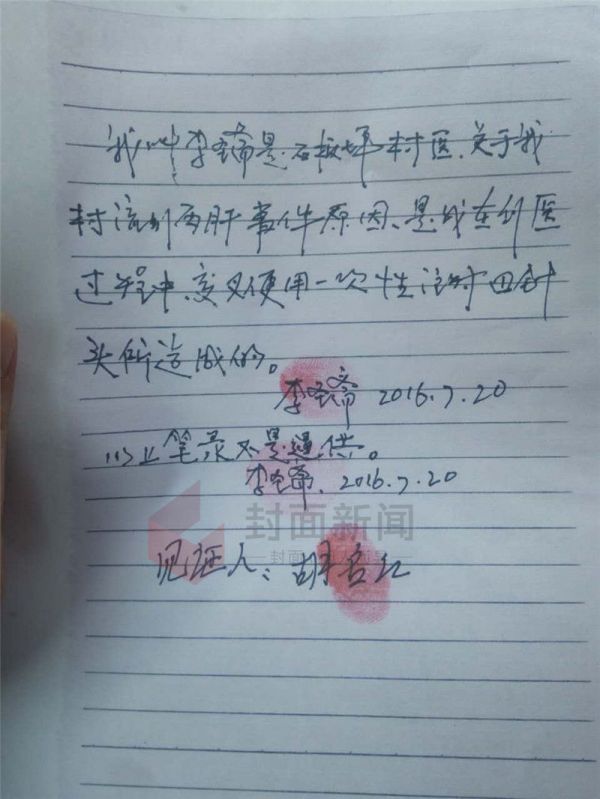 我叫李圣斋是石板坪村医.关于我
村流行丙肝事件原因、是我在行医
过程中,交叉使用一次性注射 针
头所造成的。
李圣斋 2016.7.20
以上笔录不是逼供。
李圣斋. 2016.7.20
封面新闻
封面
见证人:胡 红